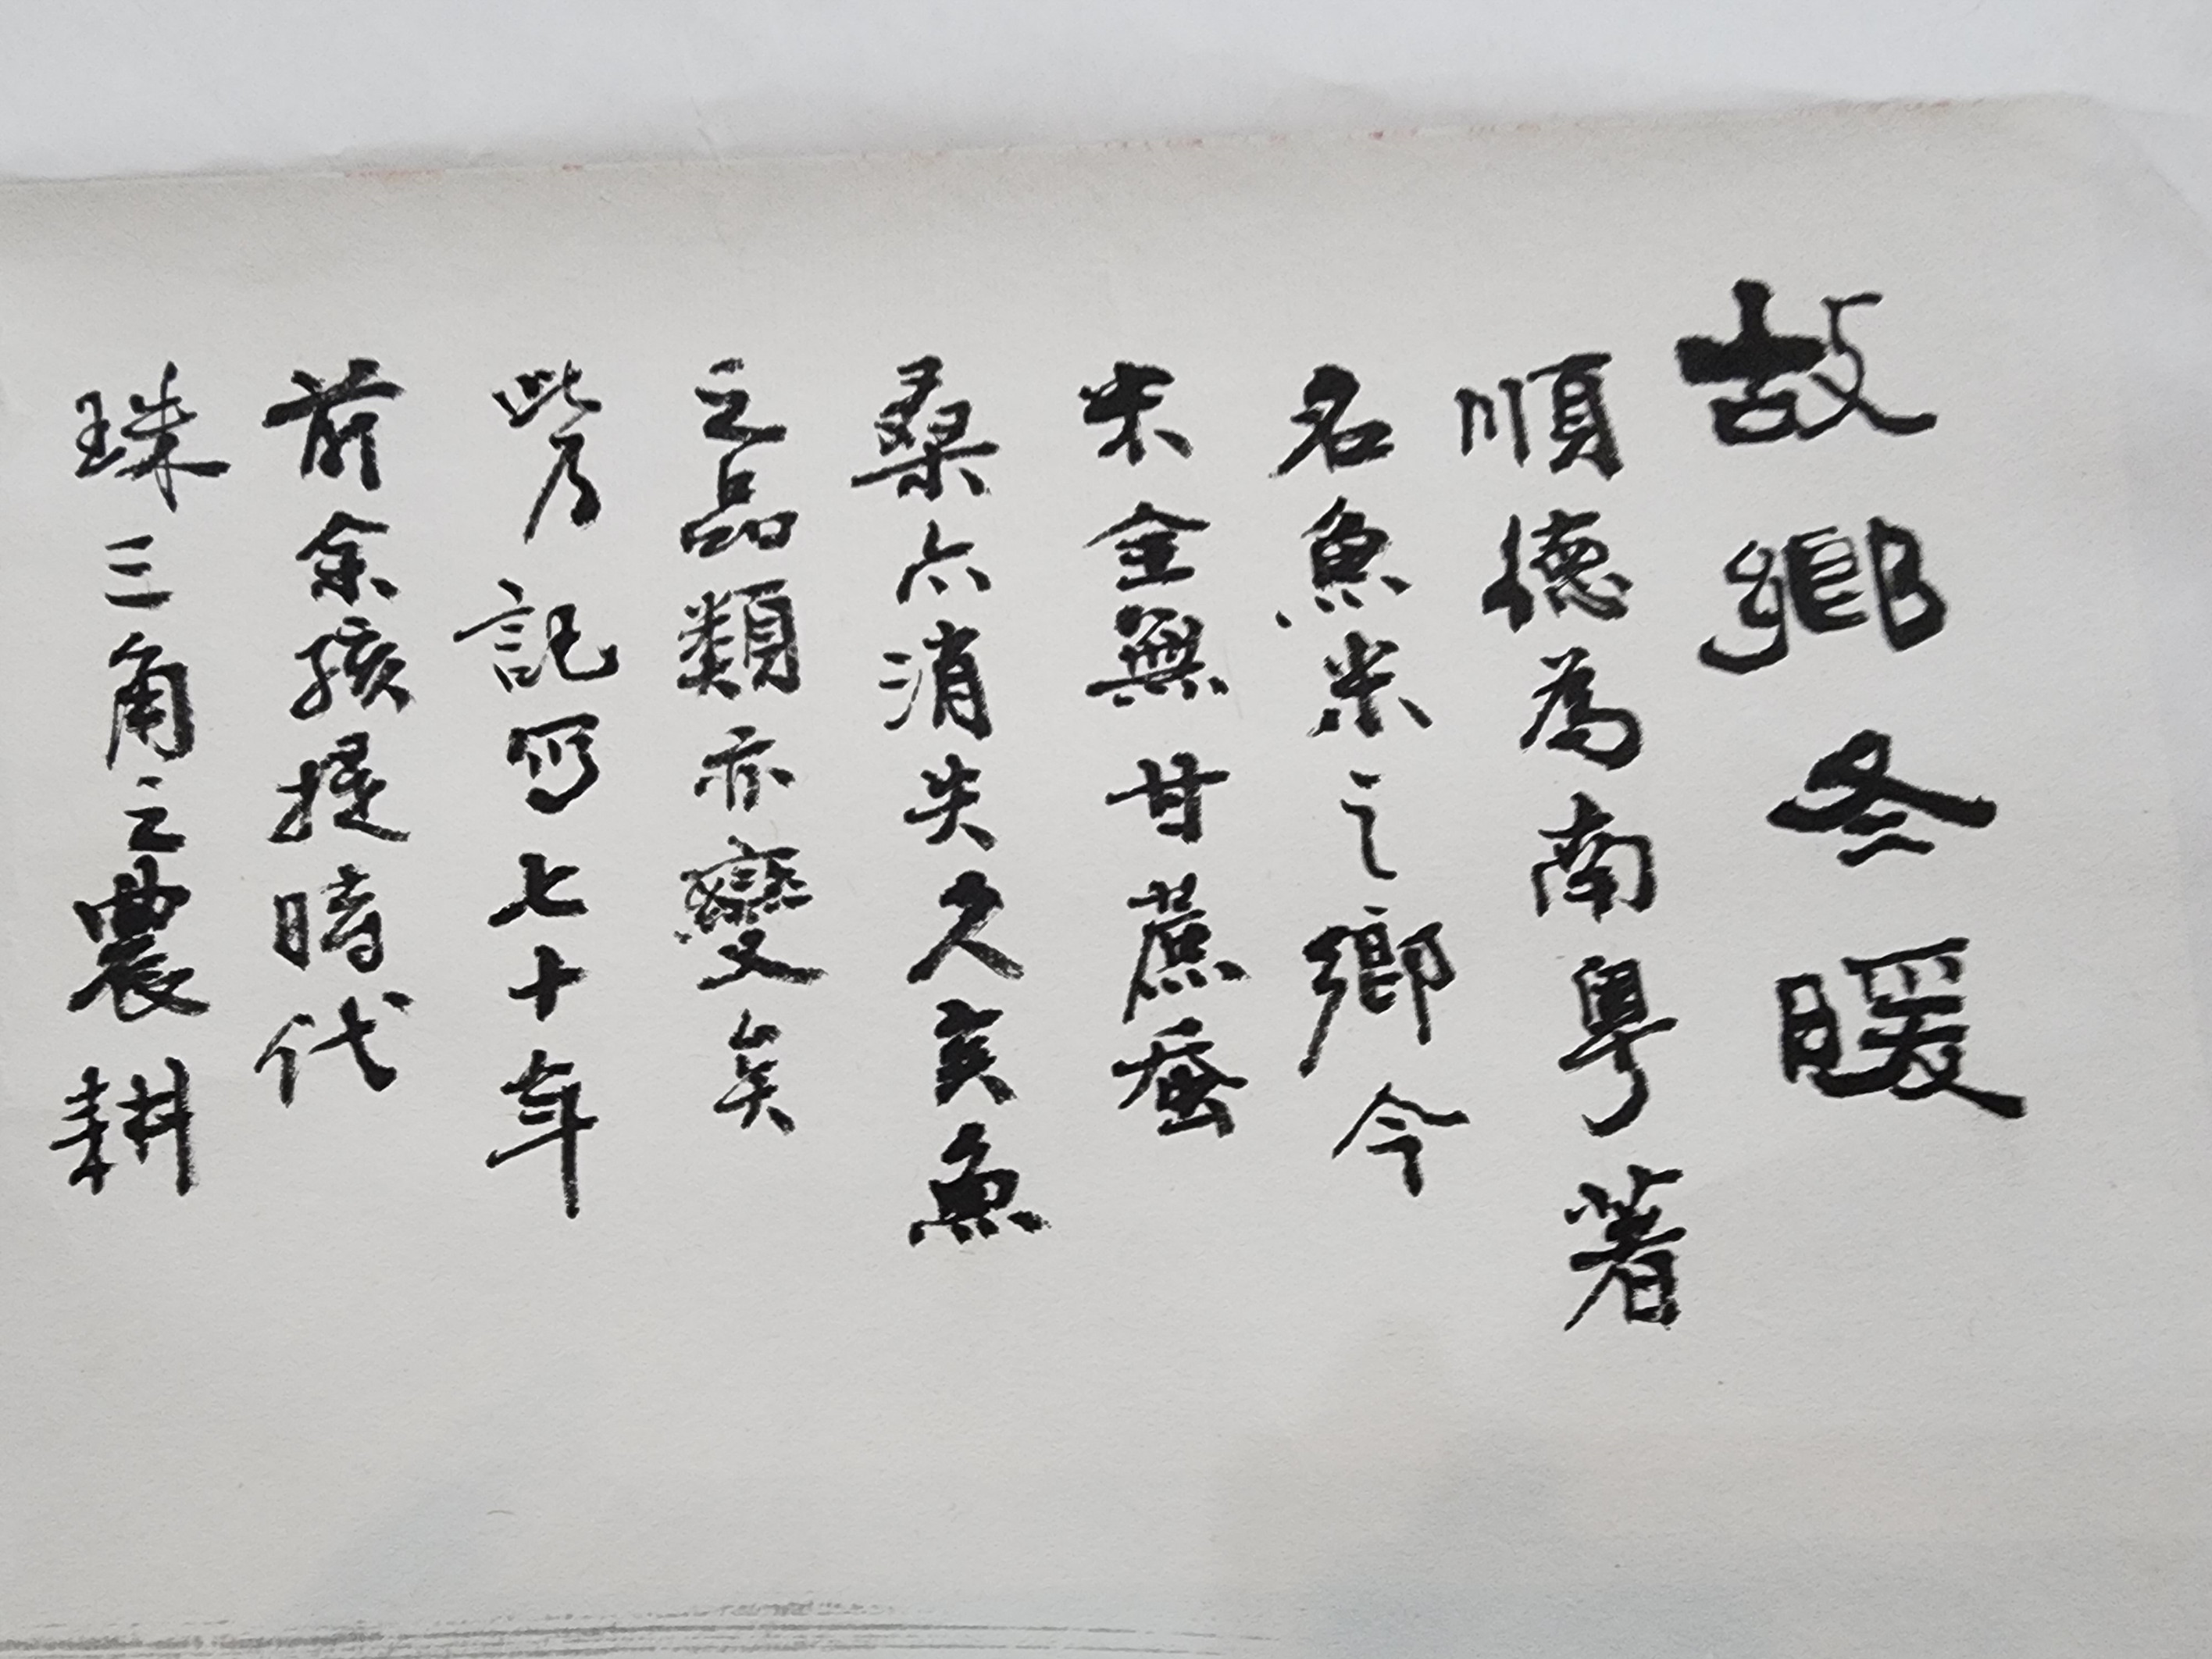 故鄉冬暖
順德為南粤著
名魚米之鄉今
米全無甘蔗蚕
桑亦消失久矣魚
之品類亦變矣
此乃記写七十年
前余孩提時代
珠三角之農耕